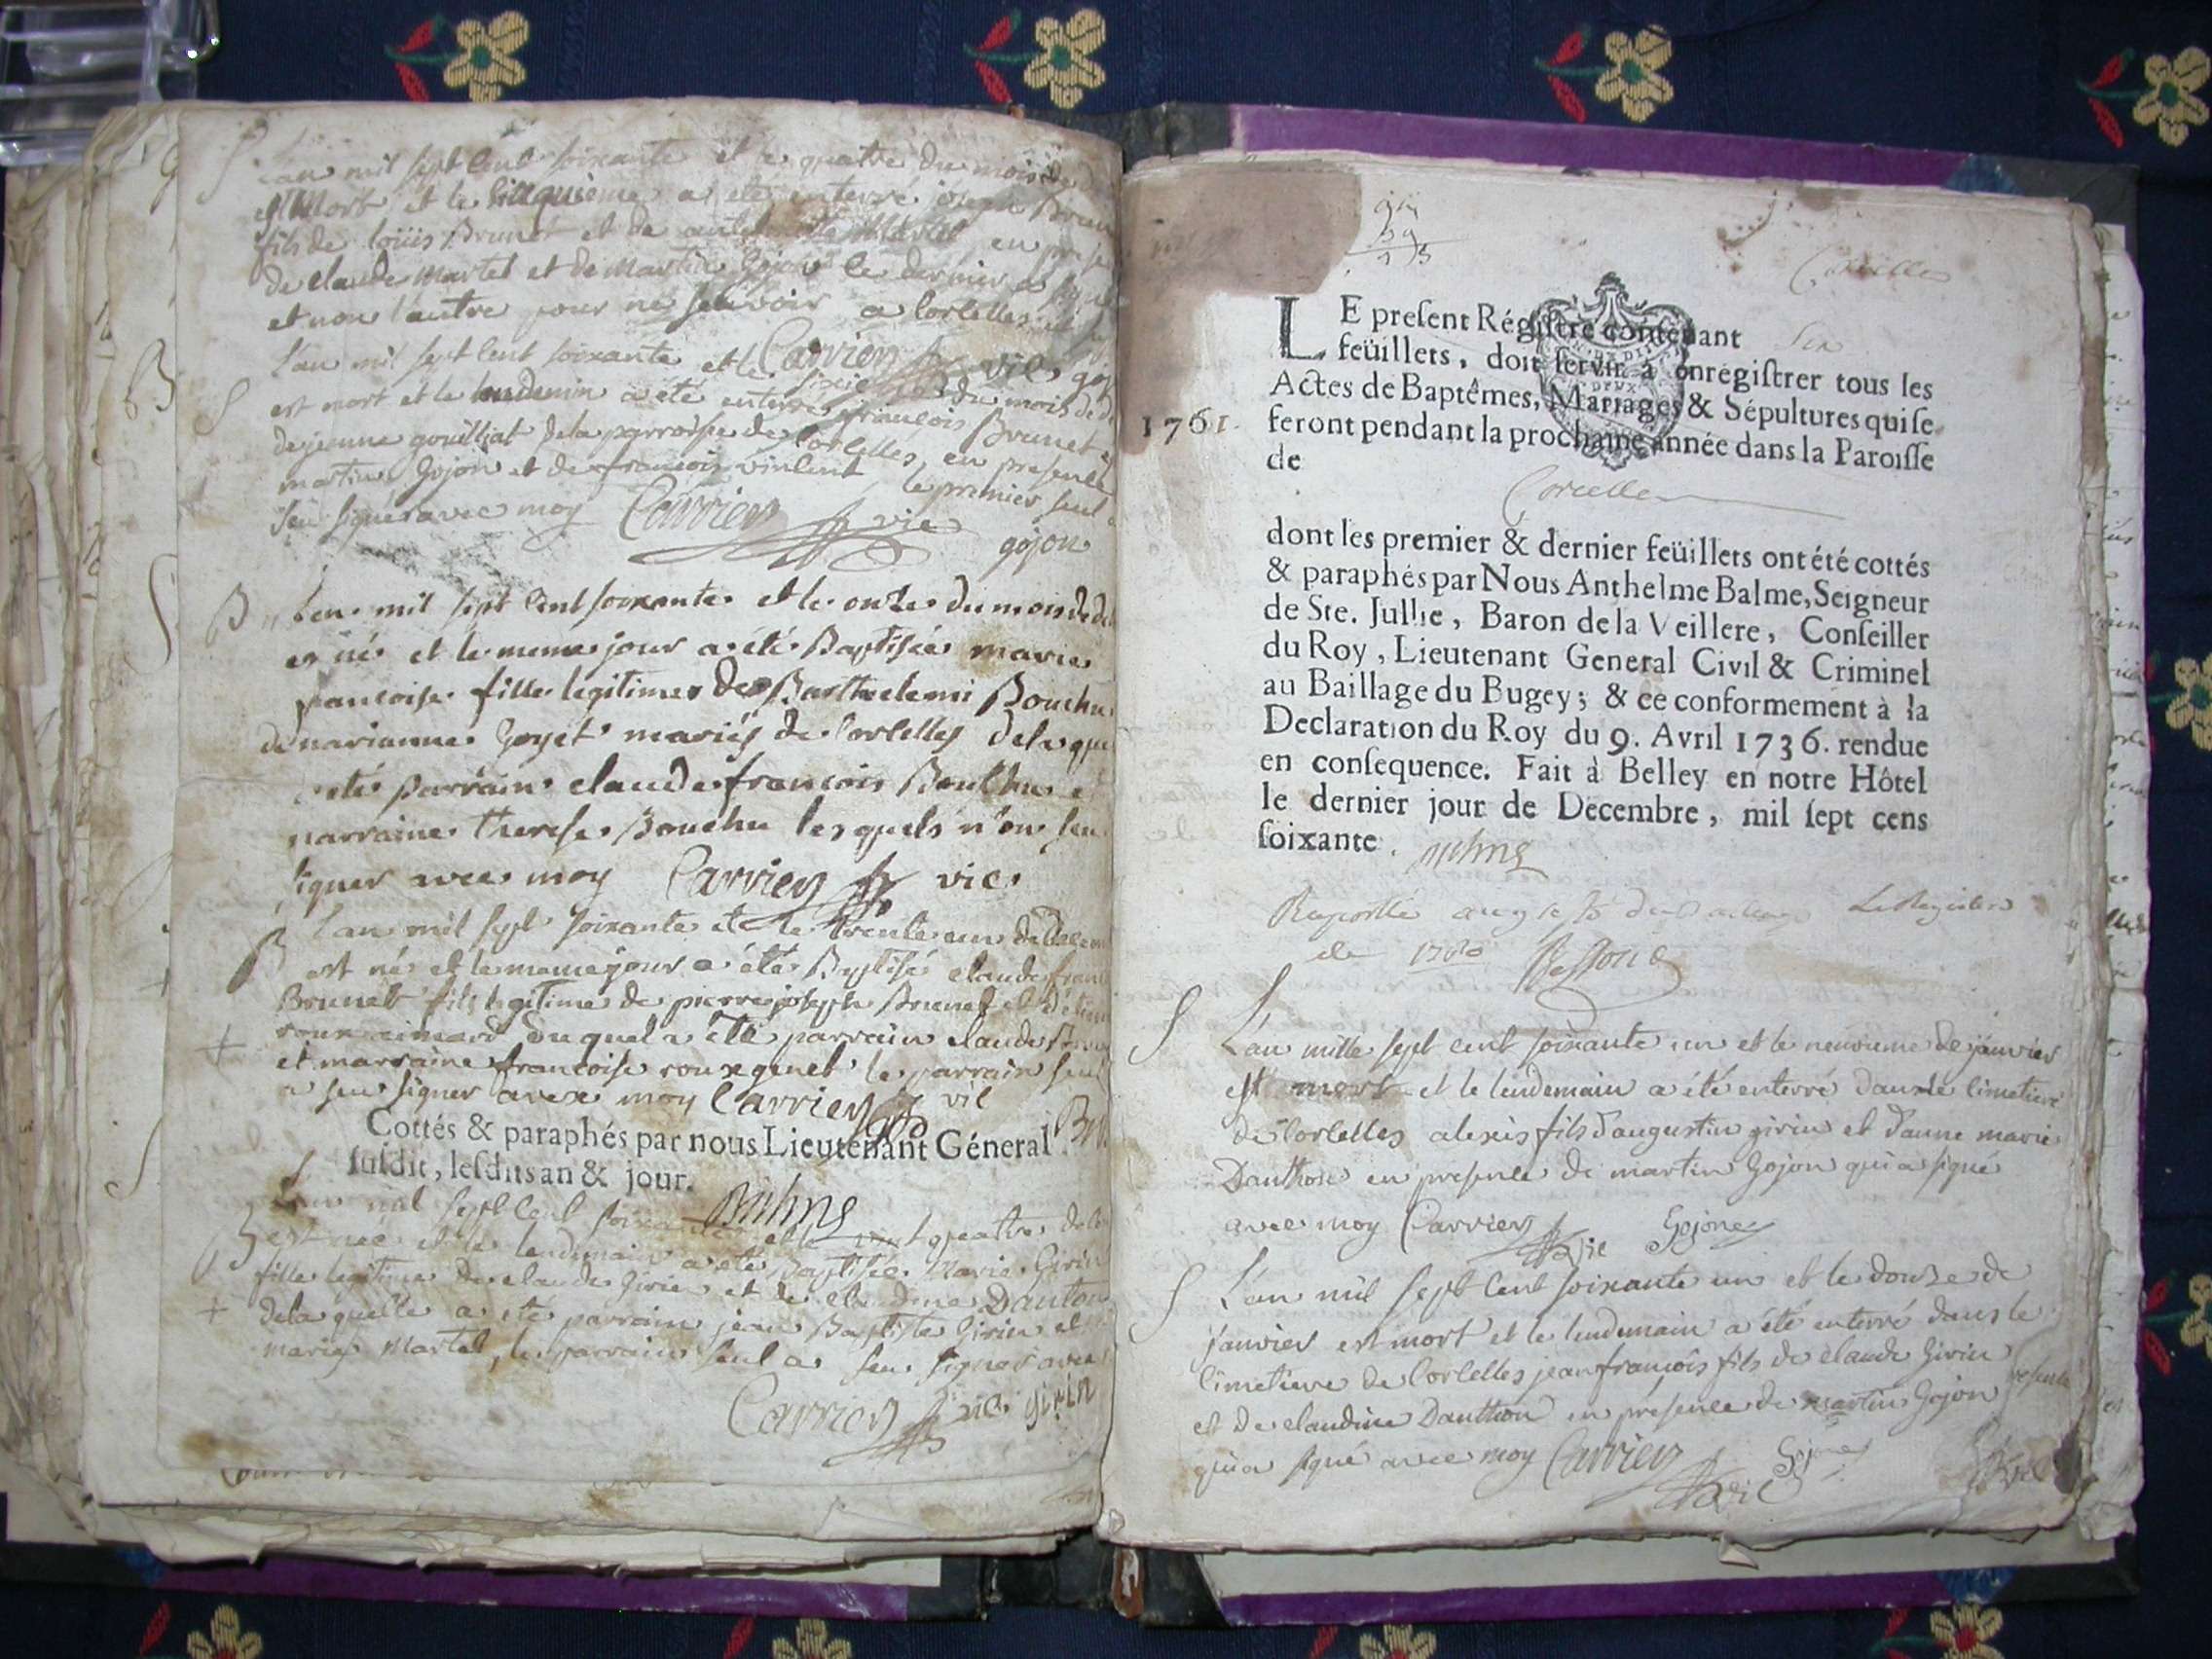 S L'an mil sept cent soixante et le quatre du mois de
est Mort et le cinquieme a été enterré joseph Brun
fils de loüis Brunet et de Martel en prese
de claude martel et de martin Gojon le dernier a signé
et non l'autre pour ne scavoir a Corcelles
Carrier vic goj
S L'an mil sept cent soixante et le sixieme du mois de d
est mort et le lendemin a été enterré francois Brunet
de jeanne gouilliat de la parroisse de Corcelles, en presence
martin Gojon et de francois vincent le premier seul a
seu signé avec moy Carrier vic
gojon
B L'an mil sept cent soixante et le onze du mois de de
es né et le meme jour a été Baptisée marie
francoise fille legitime de Barthelemi Bouchu
de marianne Goyet mariés de Corcelles de la que
été parrain claude francois Bouchu e
marraine therese Bouchu lesquels n'on seu
signer avec moy Carrier vic
B L'an mil sept soixante et le trente un de Decem
est né et le meme jour a été Baptisé claude fran
Brunet fils legitime de pierre joseph Brunet et d'
roux aimard duquel a été parrain claude Brun
+ et marraine francoise roux genet le parrain seul
a seu signer avec moy Carrier vic
Cottés & paraphés par nous Lieutenant Géneral
susdit, lesdits an & jour.
L'an mil sept cent soixante et le vent quatre de
B est née et le lendemain a été Baptisée Marie Girin
fille legitime de claude Girin et de claudine Danton
+ dela quelle a été parrain jean Baptiste Girin et
marie Martel, le parrain seul a seu signer avec
Carrier vic girin
Corcelle
LE present Régistre contenant six
feüillets, doit servir à enregistrer tous les
Actes de Baptêmes, Mariages & Sépultures qui se
1761. feront pendant la prochaine année dans la Paroisse
de
Corcelle
dont les premier & dernier feüillets ont été cottés
& paraphés par Nous Anthelme Balme, Seigneur
de Ste. Jullie, Baron de la Veillere, Conseiller
du Roy, Lieutenant General Civil & Criminel
au Baillage du Bugey; & ce conformement à la
Declaration du Roy du 9. Avril 1736. rendue
en consequence. Fait à Belley en notre Hôtel
le dernier jour de Decembre, mil sept cens
soixante.
de 1760
S L'an mille sept cent soixante un et le neuvieme de janvier
est mort et le lendemain a été enterré dans le cimetiere
de Corcelles alexis fils d'augustin girin et d'anne marie
Danthon en presence de martin Gojon qui a signé
avec moy Carrier vic Gojone
S L'an mil sept cent soixante un et le douze de
janvier est mort et le lendemain a été enterré dans le
cimetiere de Corcelles jean françois fils de claude Girin
et de claudine Danthon en présence de martin Gojon
qui a signé avec moy Carrier vic Gojone